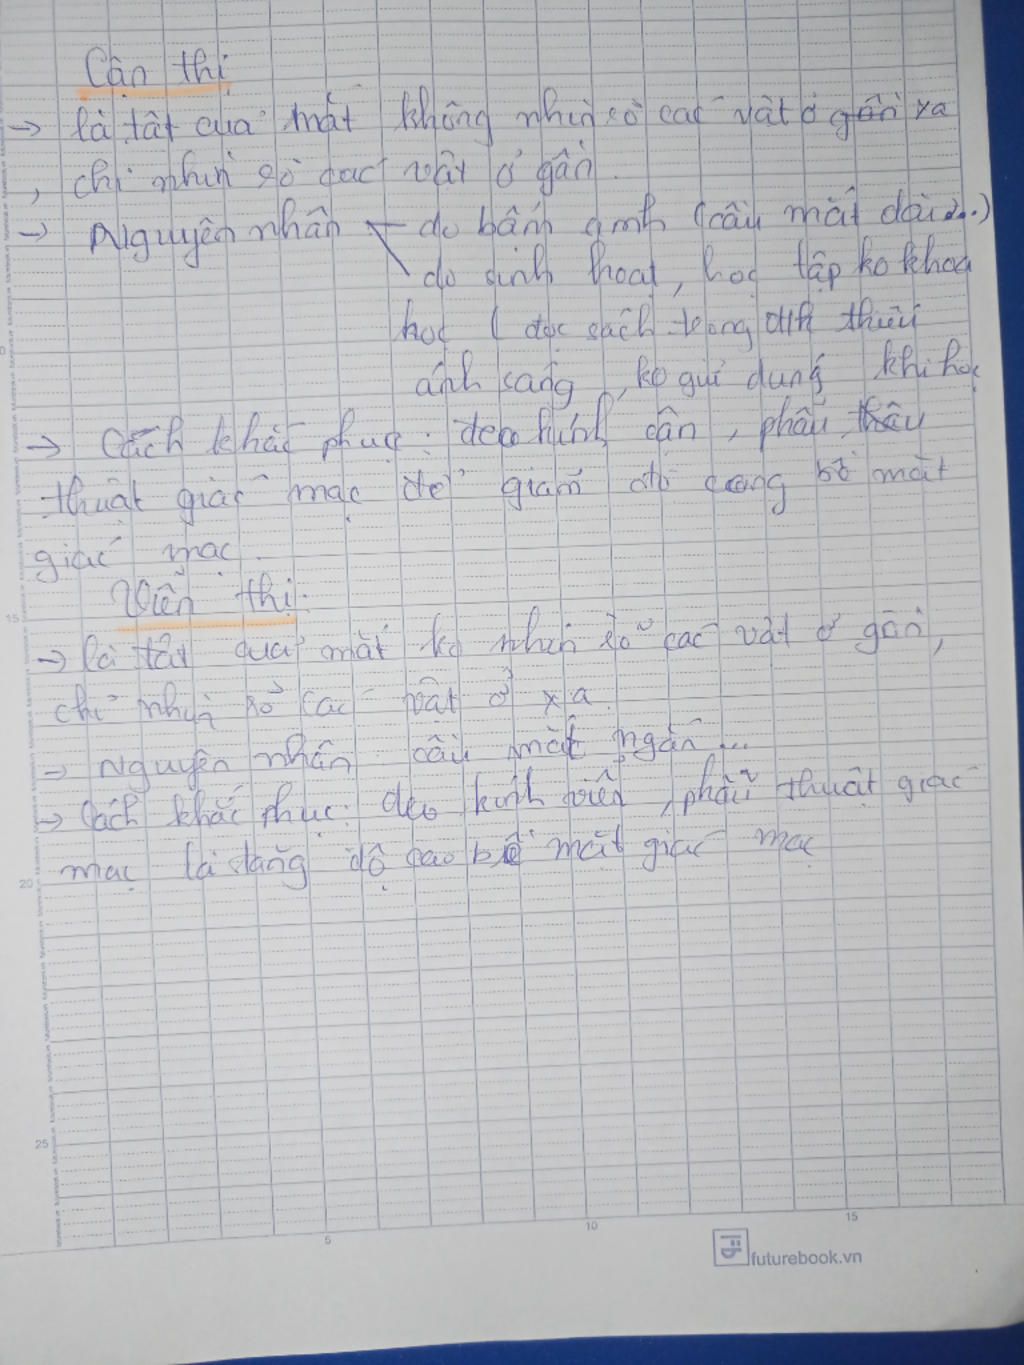 Cận thị
→ là tật của mắt không nhìn rõ các vật ở gần xa
, chỉ nhìn rõ các vật ở gần.
→ Nguyên nhân do bẩm sinh (cầu mắt dài ...)
do sinh hoạt, học tập ko khoa
học ( đọc sách trong đk thiếu
ánh sáng, ko giữ đúng khi học
→ Cách khắc phục: đeo kính cận, phẫu
thuật giác mạc để giảm độ cong bề mặt
giác mạc.
Viễn thị.
→ là tật của mắt ko nhìn rõ các vật ở gần,
chỉ nhìn rõ các vật ở xa.
→ Nguyên nhân cầu mắt ngắn...
→ Cách khắc phục: đeo kính viễn, phẫu thuật giác
mạc là tăng độ cao bề mặt giác mạc
15
20
25
5
10
15
futurebook.vn